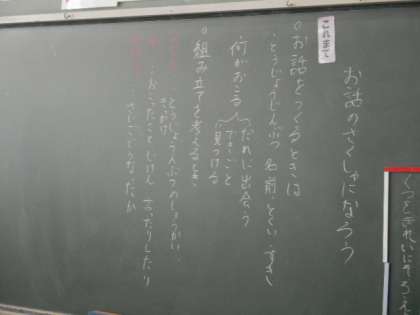 お話のさくしゃになろう
これまで
○お話をつくるときは
・とうじょうじんぶつ 名前・とくい・すきな
何がおこる
だれに出会う
できごと
見つける
○組み立てを考えるとき
・とうじょうじんぶつのしょうかい
きっかけ
・おこったこと じけん 言ったりしたり
・さいごどうなったか
くつときれいにそろえ